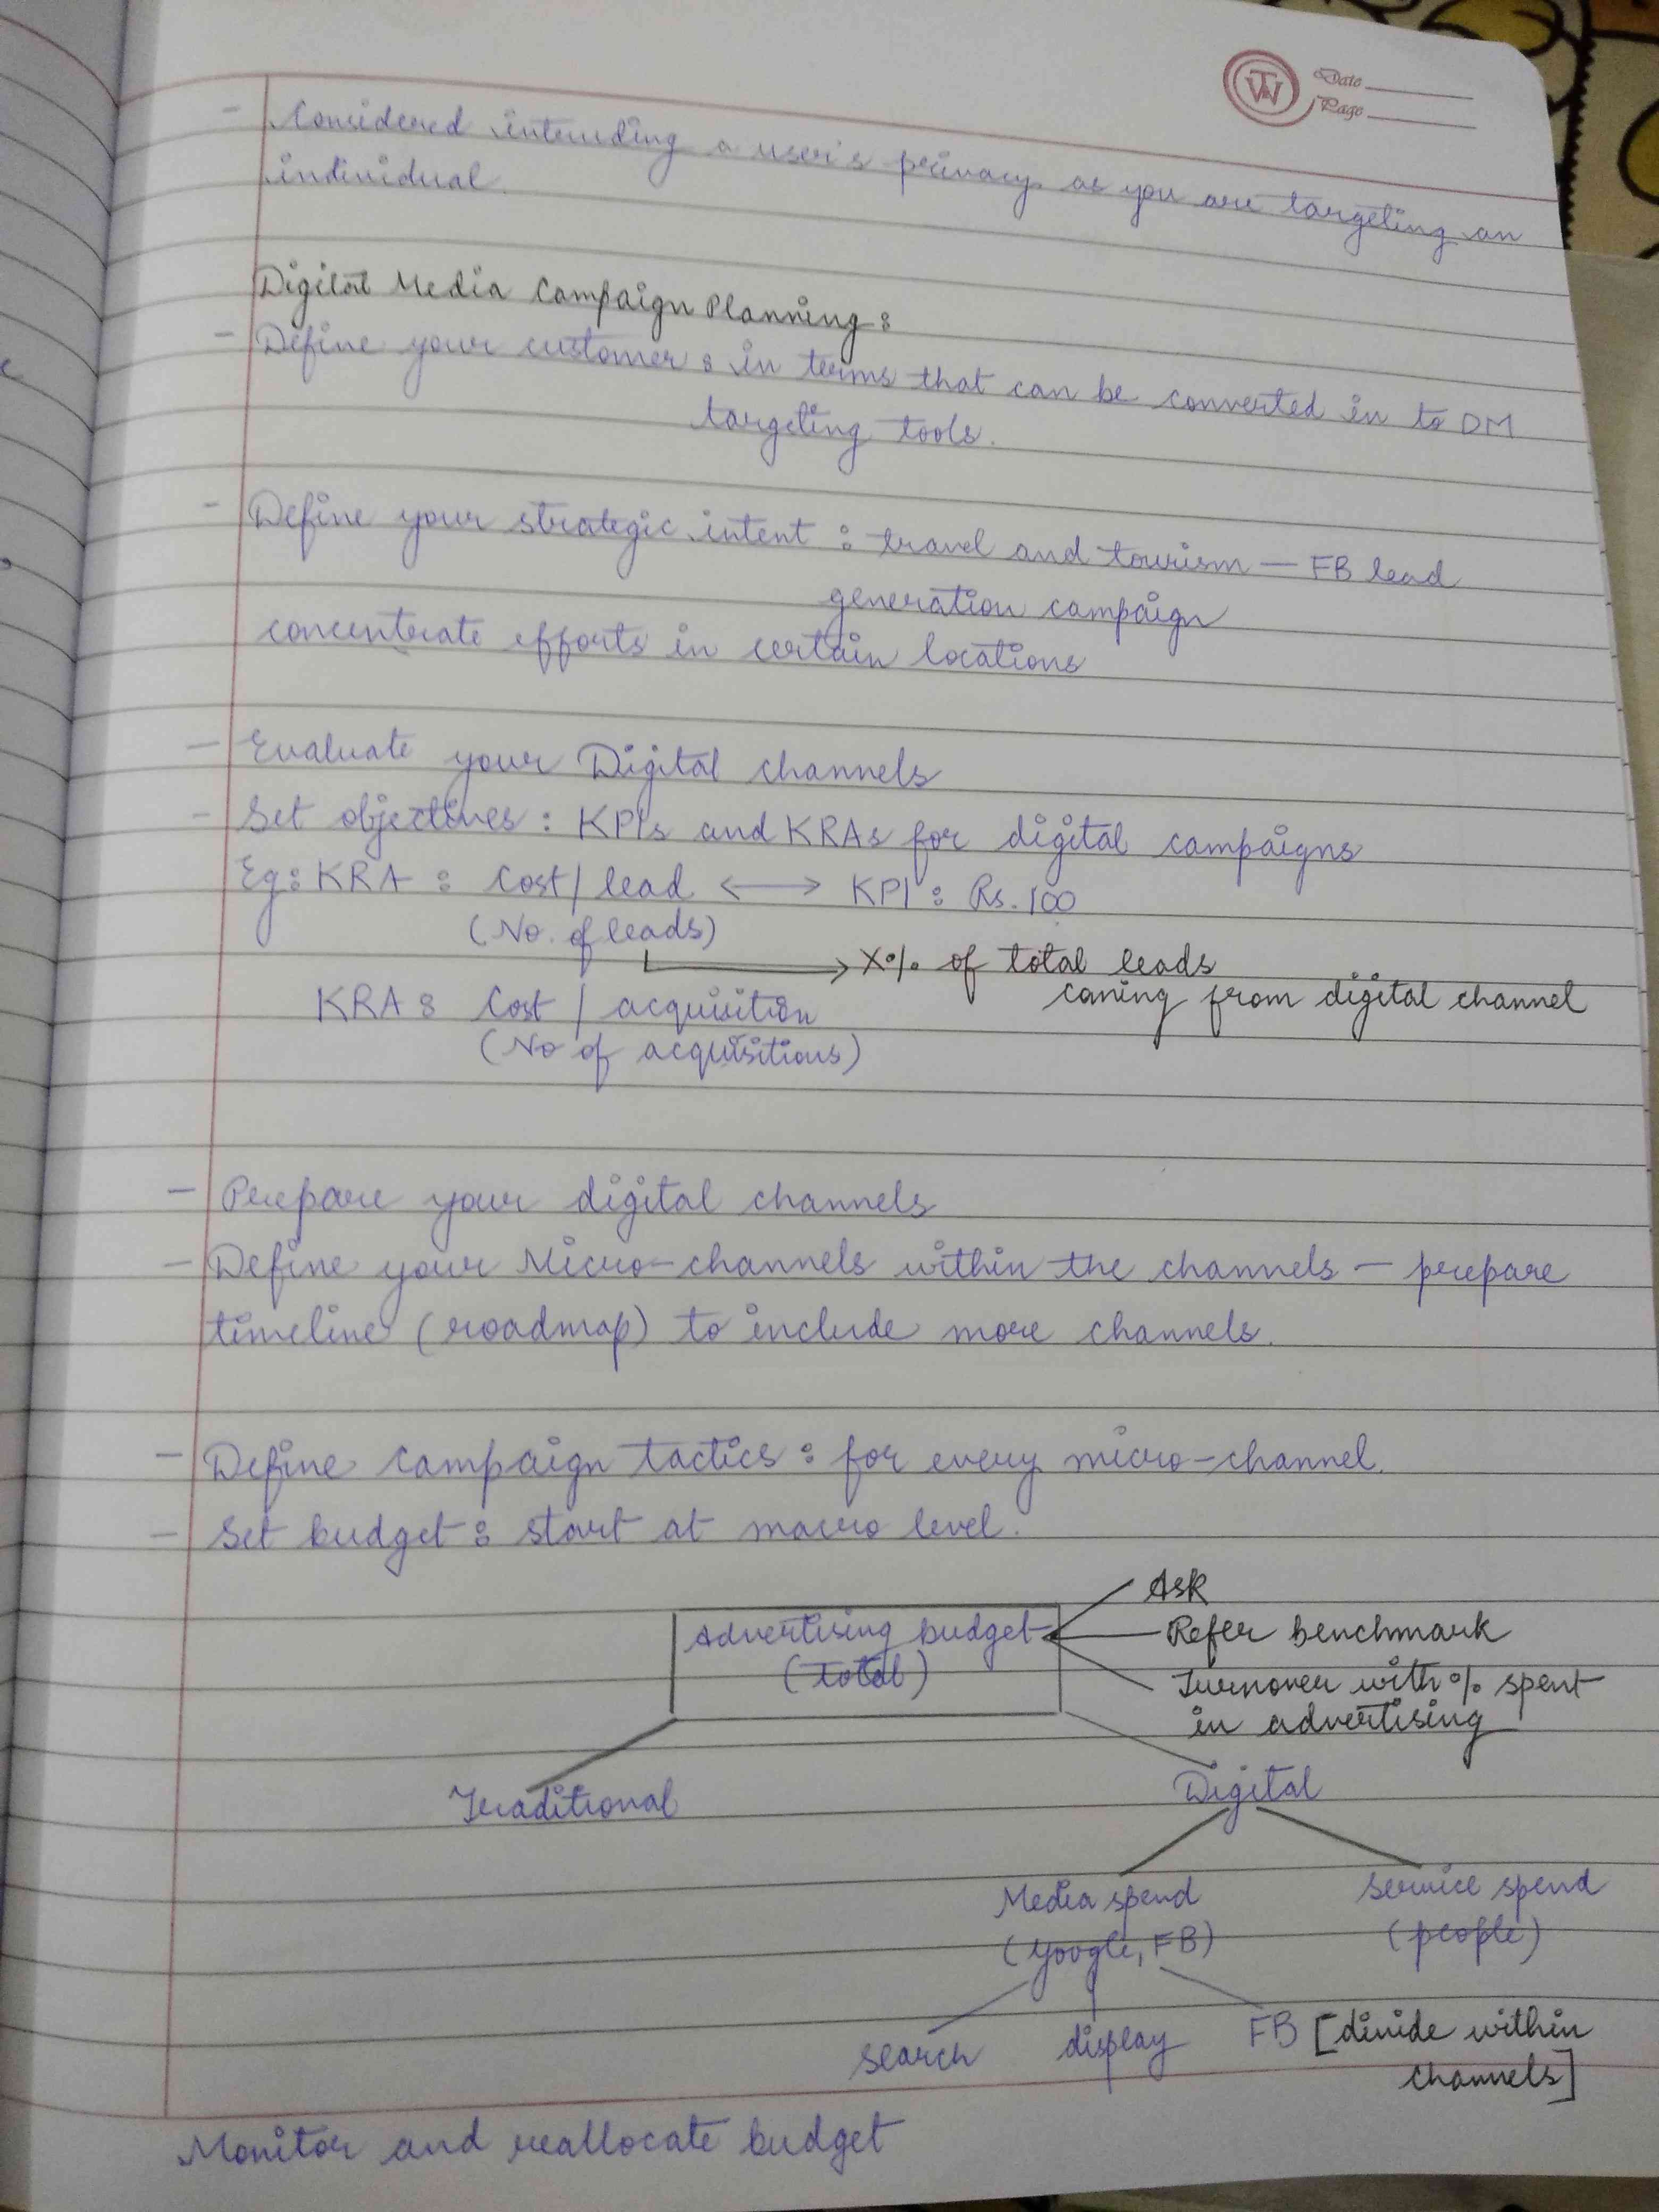 Date
Page
- Considered intruding a user's privacy as you are targeting an
individual.
Digital Media Campaign Planning :
- Define your customer : in terms that can be converted in to DM
targeting tools.
- Define your strategic intent : travel and tourism — FB lead
generation campaign
concentrate efforts in certain locations
- Evaluate your Digital channels
- Set objectives : KPIs and KRAs for digital campaigns
Eg: KRA : Cost / lead <—> KPI : Rs. 100
(No. of leads)
→ X% of total leads
KRA : Cost / acquisition
coming from digital channel
(No of acquisitions)
- Prepare your digital channels
- Define your Micro-channels within the channels — prepare
timeline (roadmap) to include more channels.
- Define campaign tactics : for every micro-channel.
- Set budget : start at macro level.
Ask
Advertising budget
Refer benchmark
(total)
Turnover with % spent
in advertising
Traditional
Digital
Media spend
Service spend
(google, FB)
(people)
search display FB [divide within
channels]
Monitor and reallocate budget